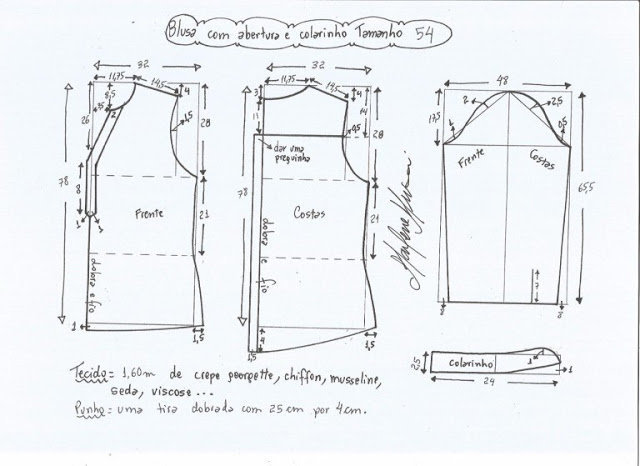 Blusa com abertura e colarinho Tamanho 54
32
11,75
14,5
4
8,5
3,5
2
26
1,5
28
78
8
1
1
Frente
21
dobra e fio
1
1,5
32
11,75
14,5
3
4
11
14
0,5
28
dar uma preguinha
78
Costas
21
dobra e fio
4
1,5
1,5
Marlene Mukai
48
17,5
2
2,5
1
0,5
Frente
Costas
65,5
7
8
8
2,5
colarinho
1
1
24
Tecido = 1,60m de crepe georgette, chiffon, musseline,
seda, viscose ...
Punho = uma tira dobrada com 25 cm por 4 cm.